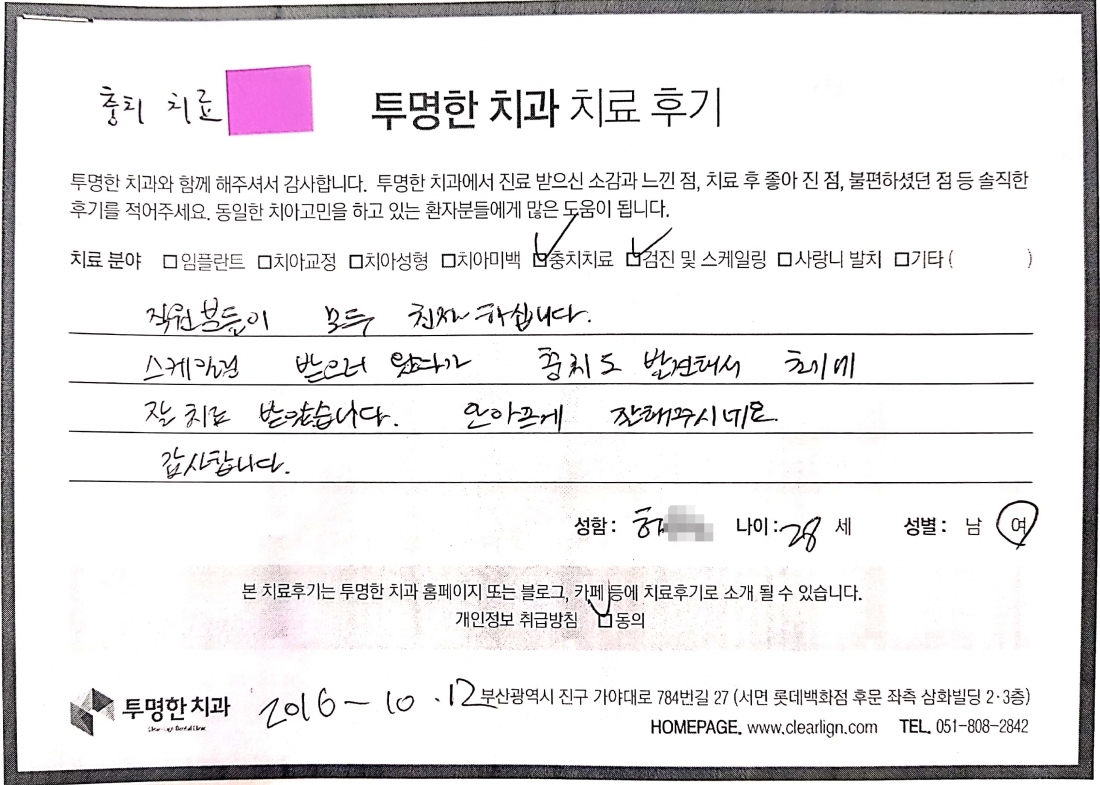 충치 치료
투명한 치과 치료 후기
투명한 치과와 함께 해주셔서 감사합니다. 투명한 치과에서 진료 받으신 소감과 느낀 점, 치료 후 좋아 진 점, 불편하셨던 점 등 솔직한
후기를 적어주세요. 동일한 치아고민을 하고 있는 환자분들에게 많은 도움이 됩니다.
치료 분야 □임플란트 □치아교정 □치아성형 □치아미백 ☑충치치료 ☑검진 및 스케일링 □사랑니 발치 □기타 ( )
직원분들이 모두 친절하십니다.
스케일링 받으러 왔다가 충치도 발견해서 초기에
잘 치료 받았습니다. 안아프게 잘해주시네요.
감사합니다.
성함: 허 나이: 28 세 성별: 남 여
본 치료후기는 투명한 치과 홈페이지 또는 블로그, 카페 등에 치료후기로 소개 될 수 있습니다.
개인정보 취급방침 ☑동의
투명한 치과 2016-10.12 부산광역시 진구 가야대로 784번길 27 (서면 롯데백화점 후문 좌측 삼화빌딩 2·3층)
HOMEPAGE. www.clearlign.com TEL. 051-808-2842